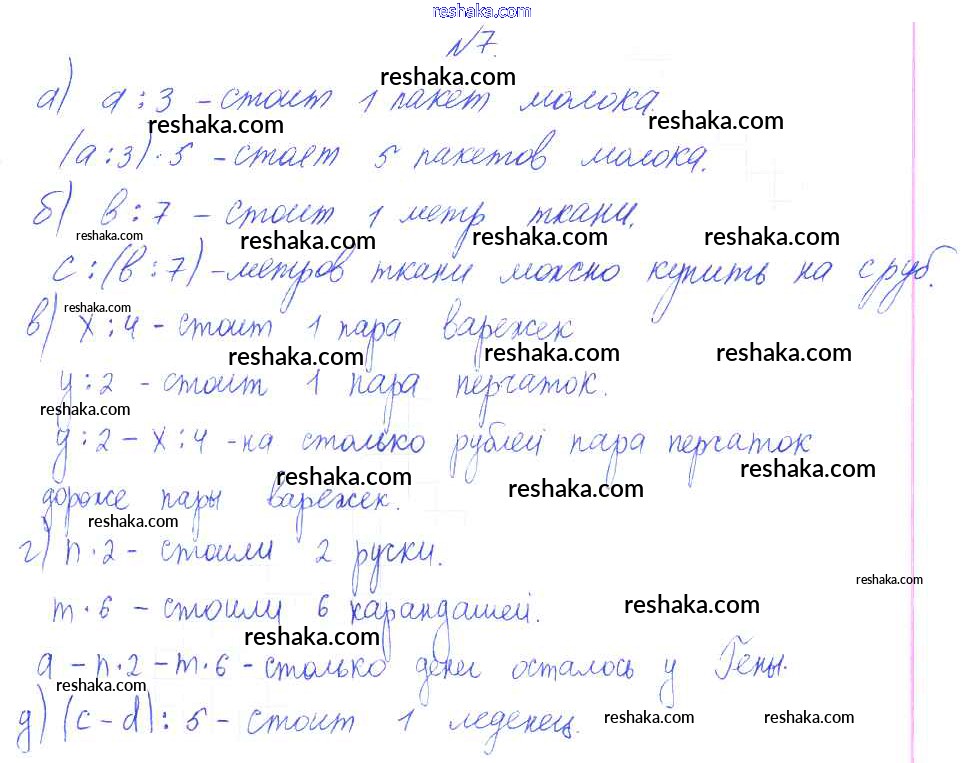 reshaka.com
№7.
reshaka.com
а) а : 3 – стоит 1 пакет молока.
reshaka.com reshaka.com
(а : 3) · 5 – стоет 5 пакетов молока.
б) в : 7 – стоит 1 метр ткани.
reshaka.com reshaka.com reshaka.com reshaka.com
с : (в : 7) – метров ткани можно купить на с руб.
reshaka.com
в) х : 4 – стоит 1 пара варежек
reshaka.com reshaka.com reshaka.com
у : 2 – стоит 1 пара перчаток.
reshaka.com
у : 2 – х : 4 – на столько рублей пара перчаток
reshaka.com reshaka.com reshaka.com
дороже пары варежек.
reshaka.com
г) n · 2 – стоили 2 руски.
reshaka.com
m · 6 – стоили 6 карандашей.
reshaka.com
reshaka.com
а – n · 2 – m · 6 – столько денег осталось у Гены.
reshaka.com
д) (c – d) : 5 – стоит 1 леденец.
reshaka.com reshaka.com